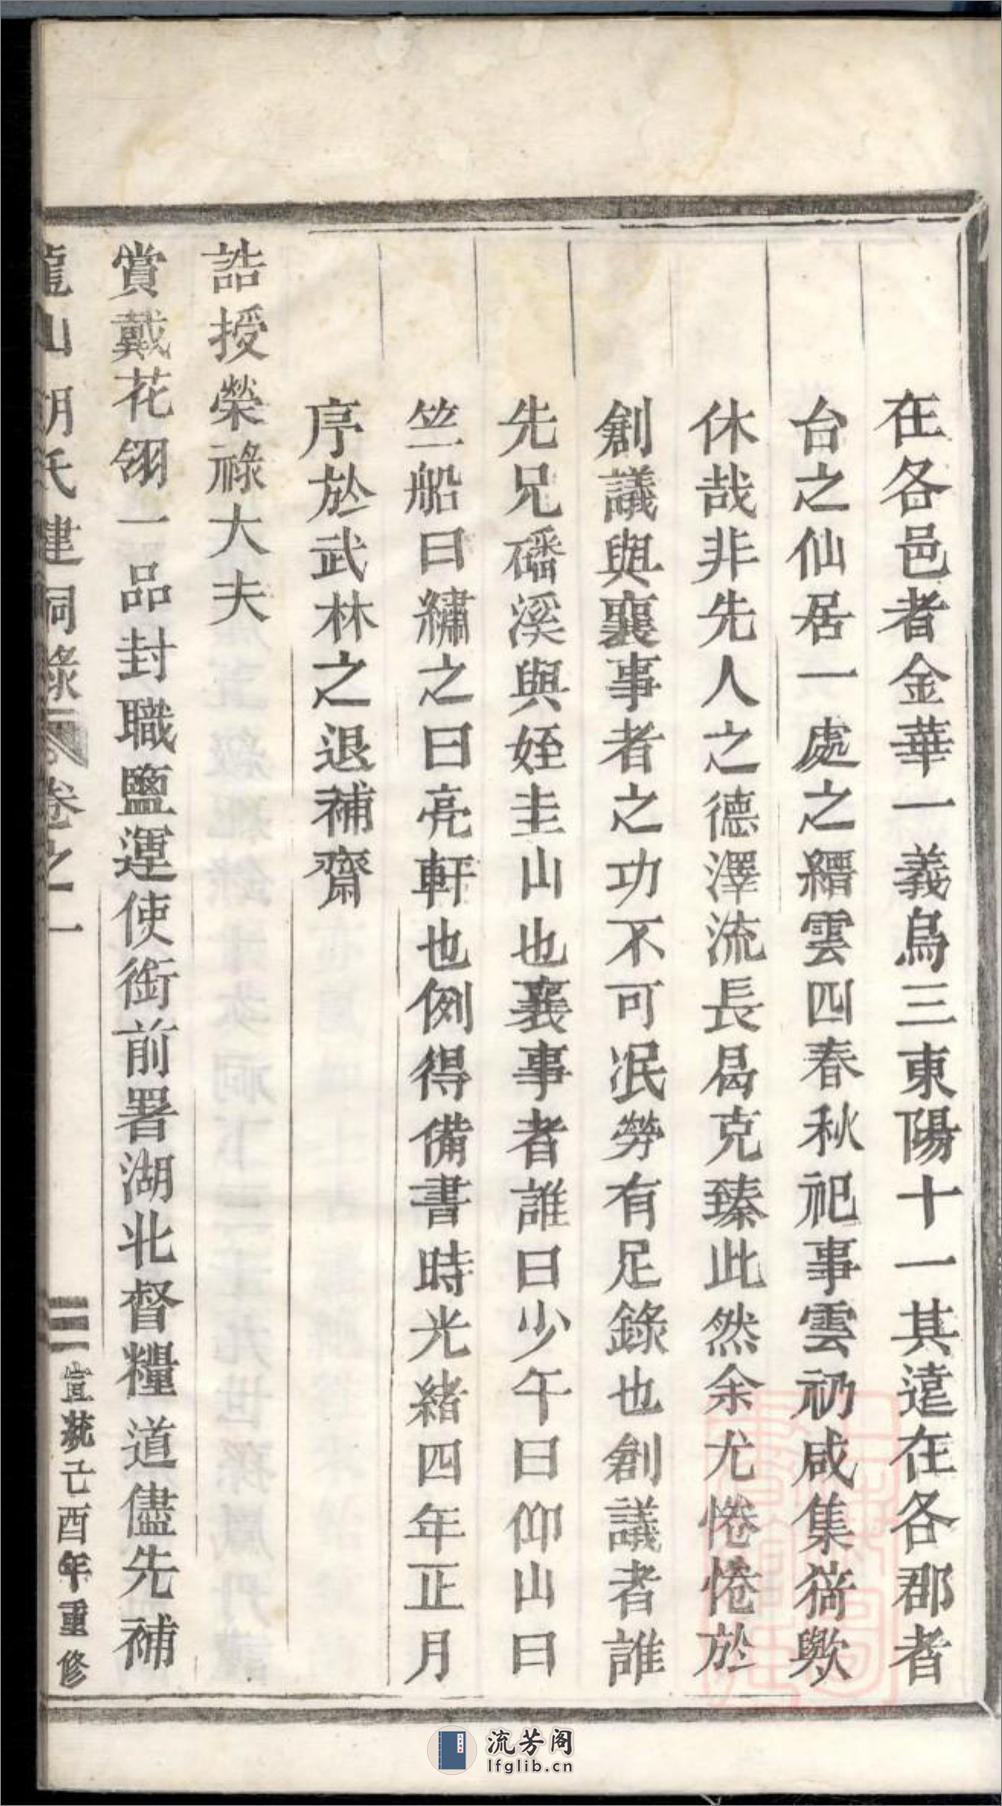 在各邑者金華一義烏三東陽十一其遠在各郡者
台之仙居一處之縉雲四春秋祀事雲礽咸集猗歟
休哉非先人之德澤流長曷克臻此然余尤惓惓於
創議與襄事者之功不可泯勞有足錄也創議者誰
先兄磻溪與姪圭山也襄事者誰曰少午曰仰山曰
竺船曰繡之曰亮軒也例得備書時光緒四年正月
序於武林之退補齋
誥授榮祿大夫
賞戴花翎一品封職鹽運使銜前署湖北督糧道儘先補
龍山胡氏建祠錄 卷之一
宣統己酉年重修
流芳阁
lfglib.cn